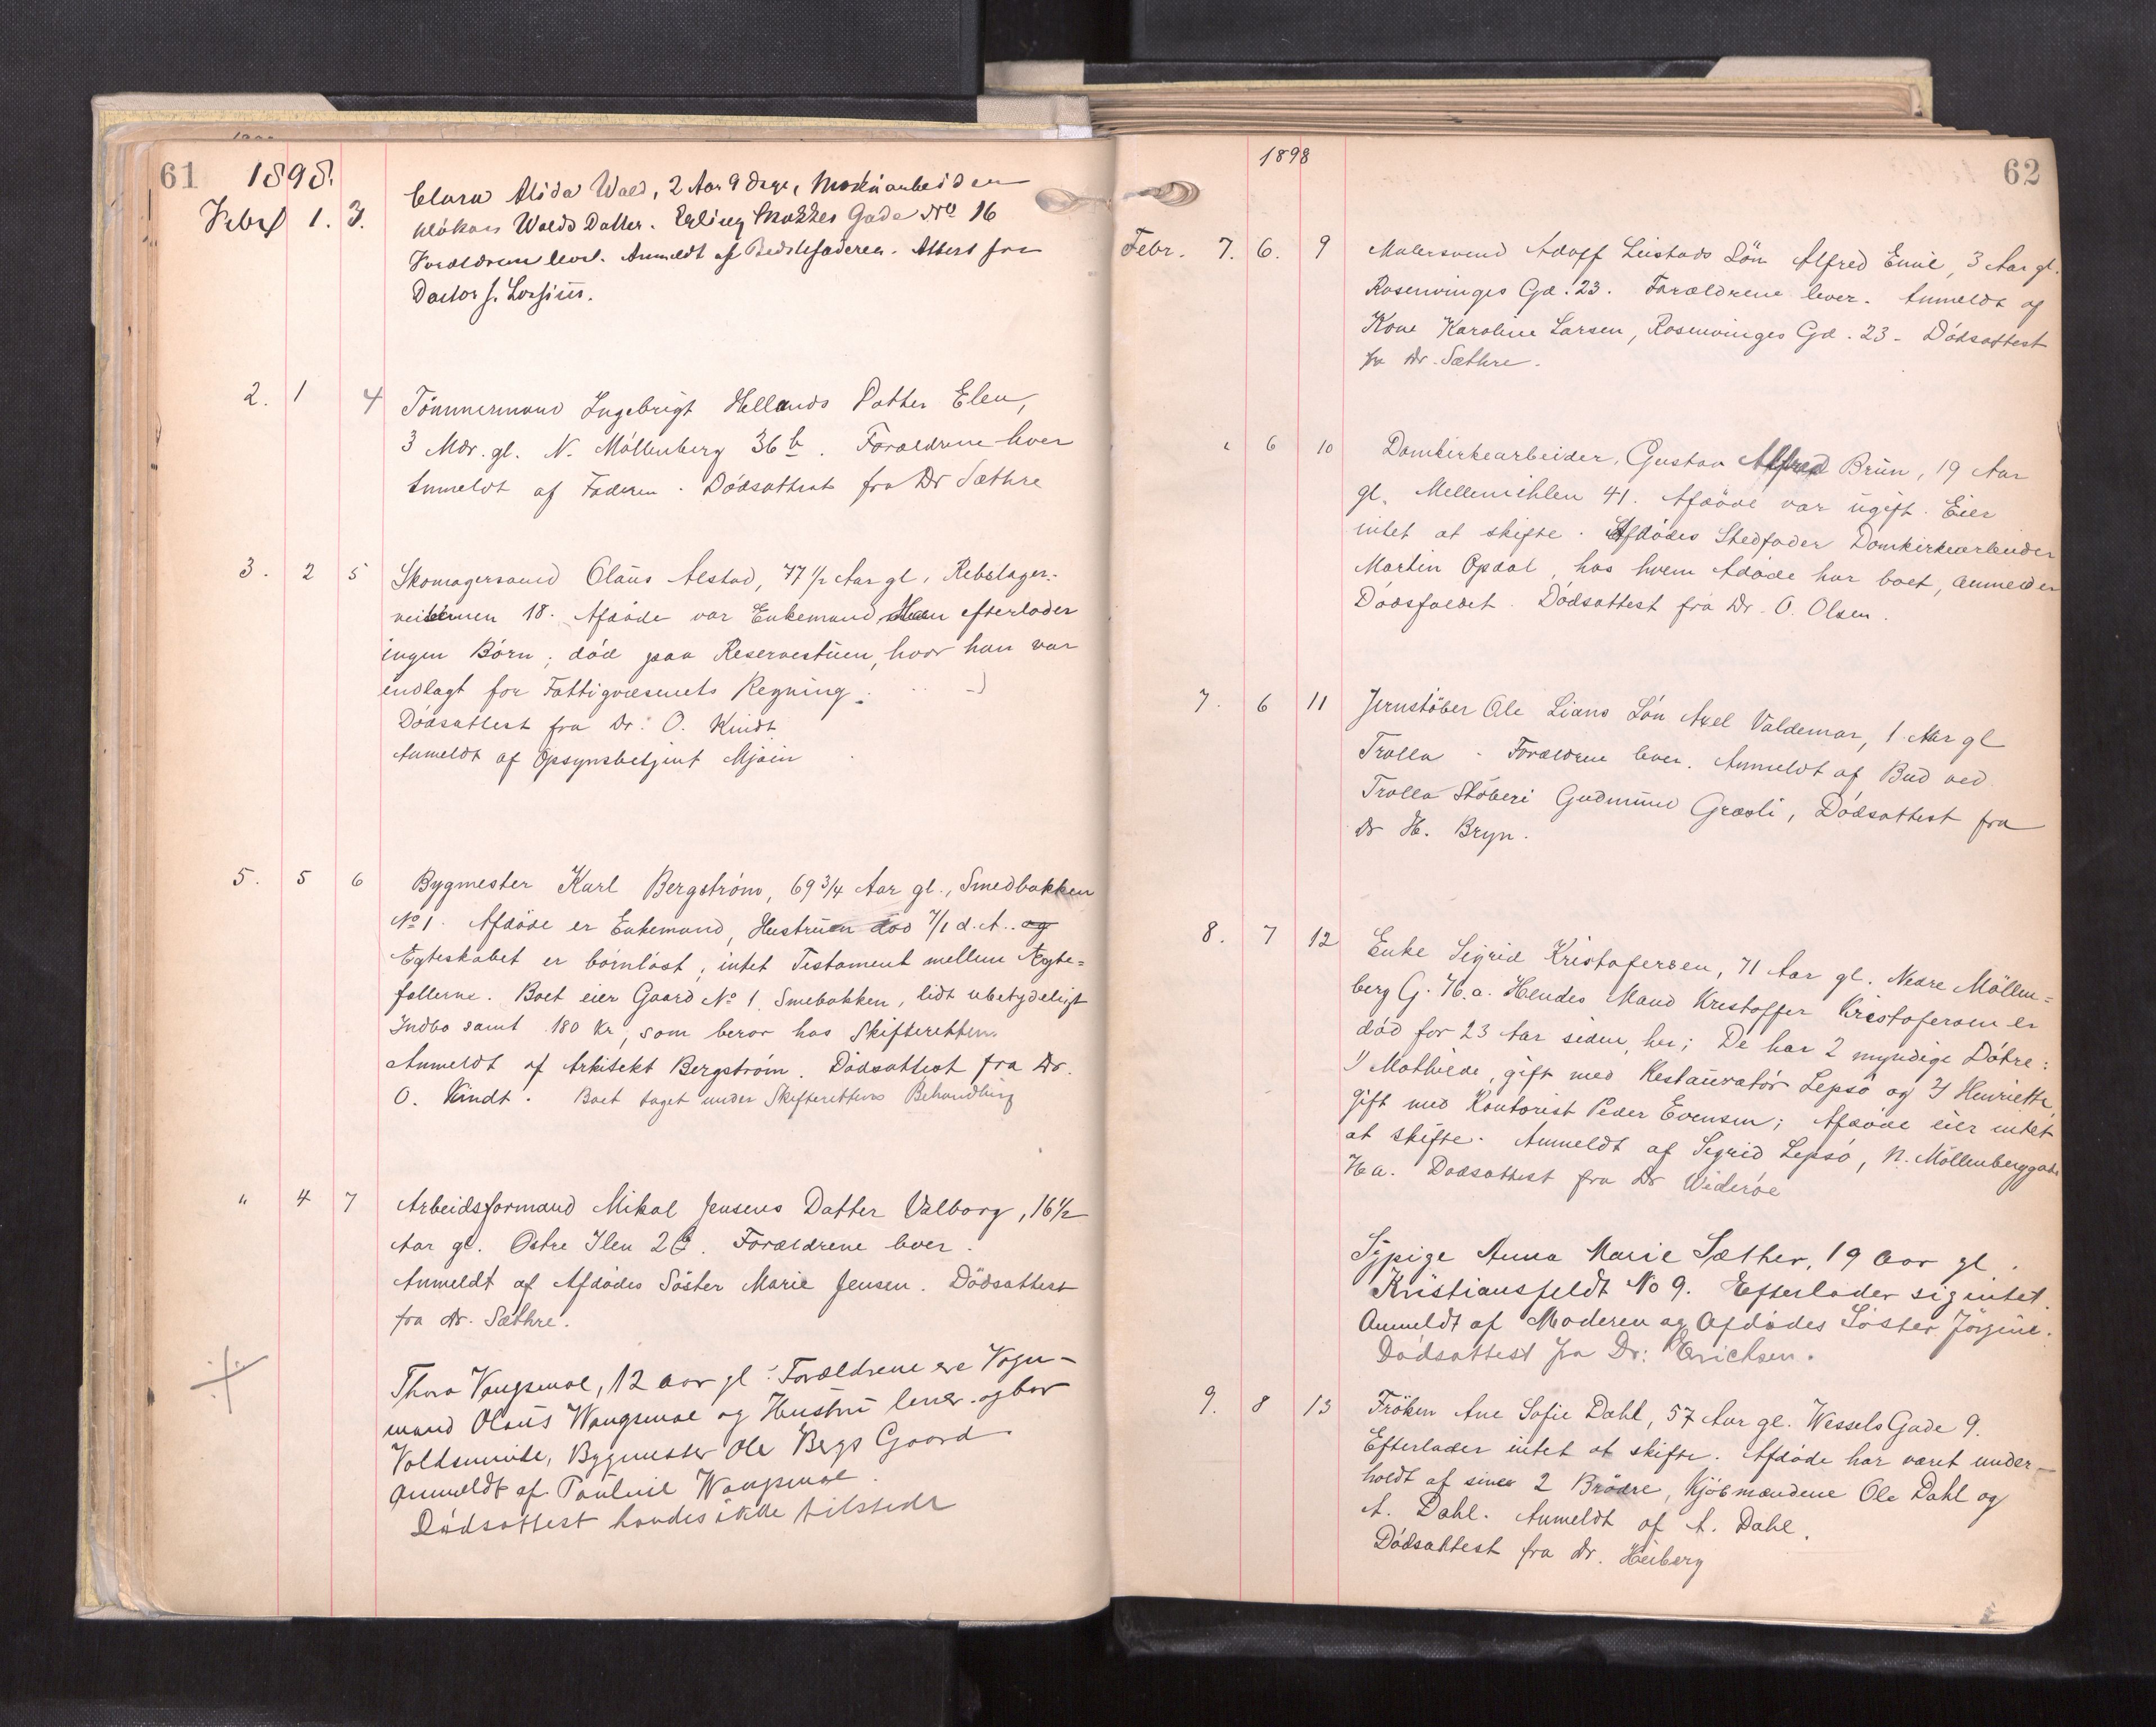 61 1898.
Febr 1. 3. Clara Alida Wald, 2 Aar 9 Dage,
Walds Datter. Erling Skakkes Gade No 16
Forældrene lever. Anmeldt af Bedstefaderen. Attest fra
Doctor
2. 1 4 Tömmermand Ingebrigt Hellands Datter Elen,
3 Mdr. gl. N. Möllenberg 36 b. Forældrene lever
Anmeldt af Faderen. Dödsattest fra Dr Sæthre
3. 2 5 Skomagersvend Olaus Alstad, 77 1/2 Aar gl, Rebslager-
veiten 18. Afdöde var Enkemand Han efterlader
ingen Börn; död paa Reservestuen, hvor han var
indlagt for Fattigvæsenets Regning.
Dödsattest fra Dr. O. Kindt
Anmeldt af Opsynsbetjent
5. 5 6 Bygmester Karl Bergström, 69 3/4 Aar gl., Smedbakken
No 1. Afdöde er Enkemand, Hustruen död 7/1 d. A. og
Ægteskabet er börnlöst; intet Testament mellem Ægte=
fællerne. Boet eier Gaard No 1 Smebakken, lidt ubetydeligt
Indbo samt 180 Kr, som beror hos Skifteretten.
Anmeldt af Arkitekt Bergström. Dödsattest fra Dr.
O. Kindt. Boet taget under Skifterettens Behandling
" 4 7 Arbeidsformand Mikal Jensens Datter Valborg, 16 1/2
Aar gl. Östre Ilen 26. Forældrene lever.
Anmeldt af Afdödes Söster Marie Jensen. Dödsattest
fra Dr. Sæthre.
Thora Vangsmoe, 12 aar gl: Forældrene ere Vogn-
mand Olaus Wangsmoe og Hustru lever. og bor
Voldsminde, Bygmester Ole Bergs Gaard
Anmeldt af Wangsmoe.
Dödsattest havdes ikke tilstede
1898 62
Febr. 7. 6. 9 Malersvend Adolf Leistads Sön Alfred Emil, 3 Aar gl.
Rosenvinges Gd. 23. Forældrene lever. Anmeldt af
Kone Karoline Larsen, Rosenvinges Gd. 23. Dödsattest
fra Dr. Sæthre.
" 6 10 Domkirkearbeider, Gustav Alfred Brun, 19 Aar
gl. Mellemihlen 41. Afdöde var ugift. Eier
intet at skifte. Afdödes Stedfader Domkirkearbeider
Martin Opdal, hos hvem Adöde har boet, anmelder
Dödsfaldet. Dödsattest fra Dr. O. Olsen.
7. 6 11 Jernstöber Ole Lians Sön Axel Valdemar, 1 Aar gl
Trolla. Forældrene lever. Anmeldt af Bud ved
Trolla Stöberi Gudmund Græsli, Dödsattest fra
Dr H. Bryn.
8. 7 12 Enke Sigrid Kristofersen, 71 Aar gl. Nedre Möllen=
berg G. 76.a. Hendes Mand Kristoffer Kristofersen er
död for 23 Aar siden, her; De har 2 myndige Döbre:
1) Mathilde, gift med Restauratör Lepsö og 2) Henriette,
gift med Kontorist Peder Evensen; Afdöde eier intet
at skifte. Anmeldt af Sigrid Lepsö, N. Möllenberggade
76a. Dödsattest fra Dr Wideröe
Sypige Anna Marie Sæther, 19 Aar gl.
Kristiansfeldt No 9. Efterlader sig intet.
Anmeldt af Moderen og Afdödes Söster Jörgine.
Dödsattest fra Dr: Erichsen.
9. 8 13 Fröken Ane Sofie Dahl, 57 Aar gl. Wessels Gade 9.
Efterlader intet at skifte. Afdöde har været under-
holdt af sine 2 Brödre, Kjöbmændene Ole Dahl og
A. Dahl. Anmeldt af A. Dahl.
Dödsattest fra Dr. Heiberg